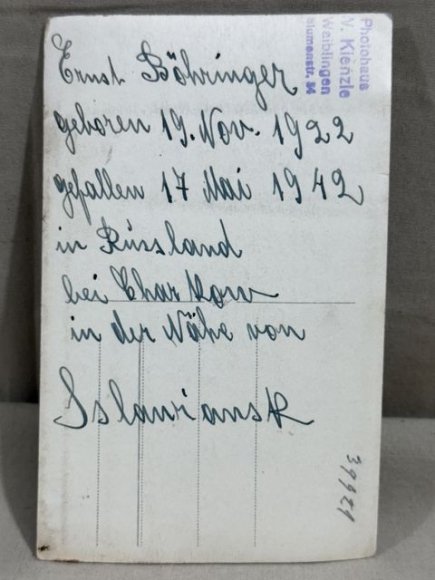 Ernst Böhringer
geboren 19. Nov. 1922
gefallen 17 Mai 1942
in Russland
bei Charkow
in der Nähe von
Sslawiansk
Photohaus
W. Kienzle
Waiblingen
Blumenstr. 34